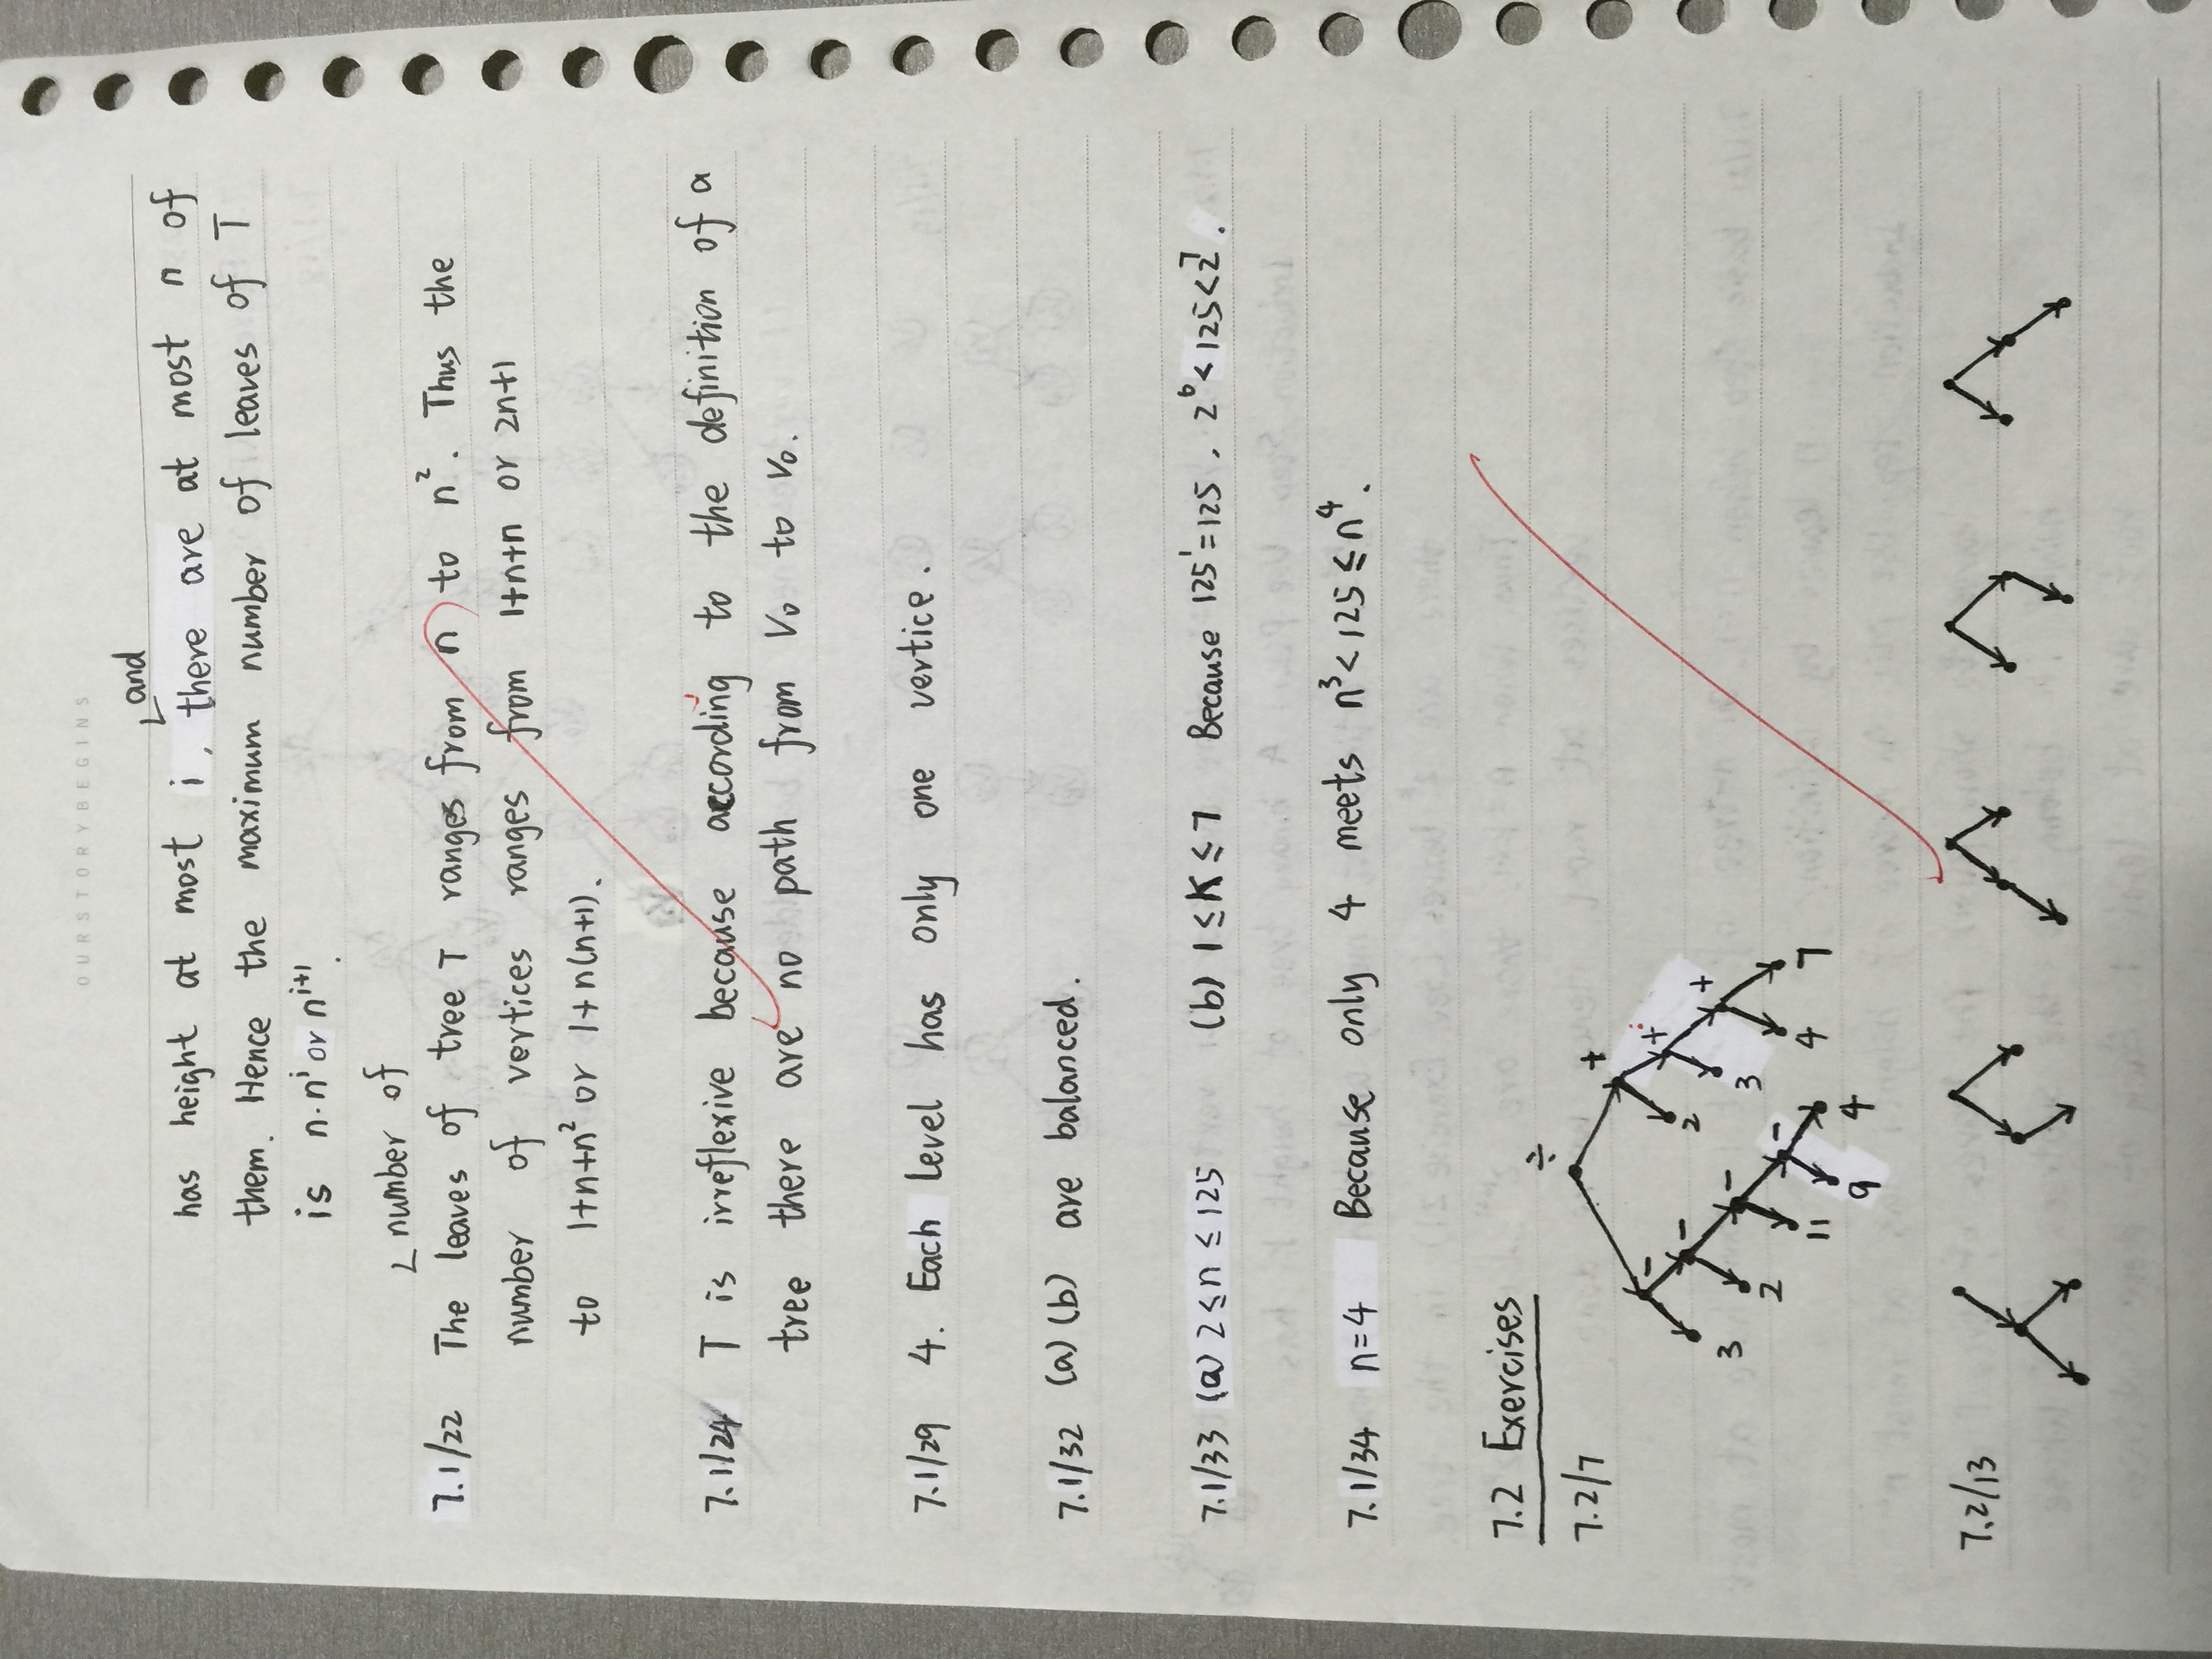 OURSTORYBEGINS
and
has height at most i, there are at most n of
them. Hence the maximum number of leaves of T
is n·nⁱ or nⁱ⁺¹.
number of
7.1/22 The leaves of tree T ranges from n to n². Thus the
number of vertices ranges from 1+n+n or 2n+1
to 1+n+n² or 1+n(n+1).
7.1/24 T is irreflexive because according to the definition of a
tree there are no path from V₀ to V₀.
7.1/29 4. Each level has only one vertice.
7.1/32 (a)(b) are balanced.
7.1/33 (a) 2≤n≤125 (b) 1≤K≤7 Because 125¹=125, 2⁶<125<2⁷.
7.1/34 n=4 Because only 4 meets n³<125≤n⁴.
7.2 Exercises
÷
7.2/7
+
- +
- 2 +
3 - 3
2 - 4 7
11
9 4
7.2/13